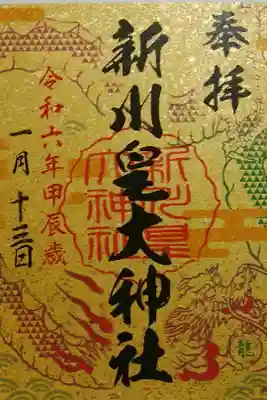 奉拝
新川皇大神社
新川皇
大神社
令和六年甲辰歳
一月十三日
龍